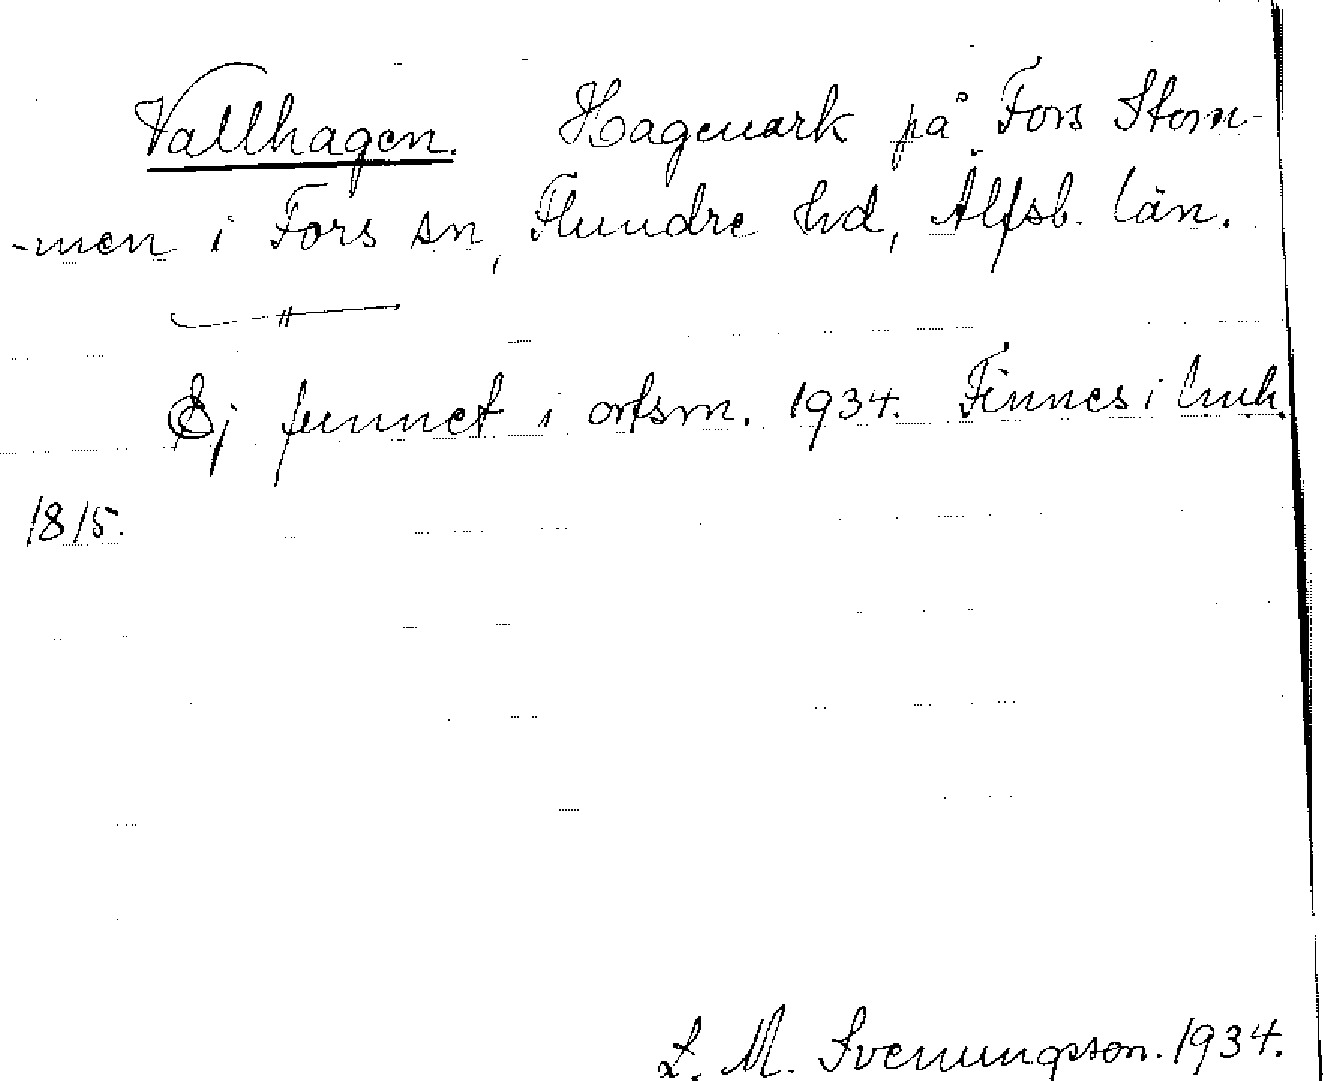 Vallhagen. Hagmark på Fors Stom-
-men i Fors sn, Flundre hd, Älfsb. län.
— " —
Ej funnet i ortsm. 1934. Finnes i
1815.
L. M. Svenungsson. 1934.